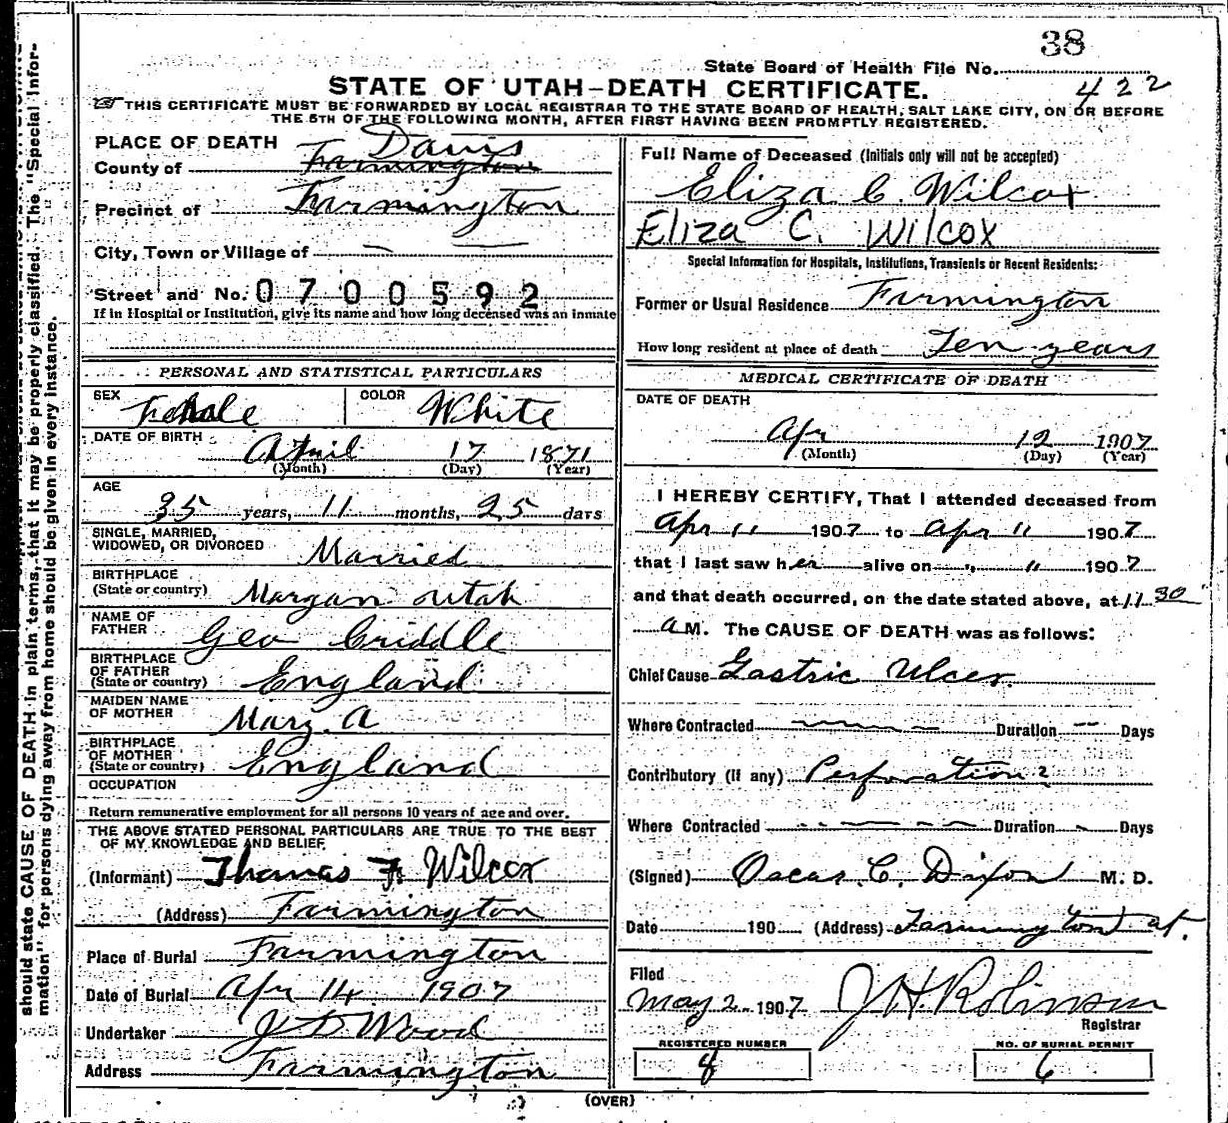 38
State Board of Health File No.
422
STATE OF UTAH—DEATH CERTIFICATE.
THIS CERTIFICATE MUST BE FORWARDED BY LOCAL REGISTRAR TO THE STATE BOARD OF HEALTH, SALT LAKE CITY, ON OR BEFORE
THE 5TH OF THE FOLLOWING MONTH, AFTER FIRST HAVING BEEN PROMPTLY REGISTERED.
should state CAUSE OF DEATH in plain terms, that it may be properly classified. The "Special Infor-
mation" for persons dying away from home should be given in every instance.
PLACE OF DEATH
Davis
County of Farmington
Precinct of Farmington
City, Town or Village of
Street and No. 0700592
If in Hospital or Institution, give its name and how long deceased was an inmate
PERSONAL AND STATISTICAL PARTICULARS
SEX Female COLOR White
DATE OF BIRTH April 17 1871
(Month) (Day) (Year)
AGE
35 years, 11 months, 25 days
SINGLE, MARRIED,
WIDOWED, OR DIVORCED Married
BIRTHPLACE
(State or country) Morgan Utah
NAME OF
FATHER Geo Criddle
BIRTHPLACE
OF FATHER
(State or country) England
MAIDEN NAME
OF MOTHER Mary A
BIRTHPLACE
OF MOTHER
(State or country) England
OCCUPATION
Return remunerative employment for all persons 10 years of age and over.
THE ABOVE STATED PERSONAL PARTICULARS ARE TRUE TO THE BEST
OF MY KNOWLEDGE AND BELIEF.
(Informant) Thomas F. Wilcox
(Address) Farmington
Place of Burial Farmington
Date of Burial Apr 14 1907
Undertaker J D Wood
Address Farmington
Full Name of Deceased (Initials only will not be accepted)
Eliza C. Wilcox
Eliza C. Wilcox
Special Information for Hospitals, Institutions, Transients or Recent Residents:
Former or Usual Residence Farmington
How long resident at place of death Ten years
MEDICAL CERTIFICATE OF DEATH
DATE OF DEATH
Apr 12 1907
(Month) (Day) (Year)
I HEREBY CERTIFY, That I attended deceased from
Apr 11 1907 to Apr 11 1907
that I last saw her alive on " 11 1907
and that death occurred, on the date stated above, at 11.30
A M. The CAUSE OF DEATH was as follows:
Chief Cause Gastric Ulcer.
Where Contracted Duration Days
Contributory (if any) Perforation?
Where Contracted Duration Days
(Signed) Oscar C. Dixon M. D.
Date 190 (Address) Farmington ut.
Filed
May 2 1907 J H Robinson
Registrar
REGISTERED NUMBER NO. OF BURIAL PERMIT
8 6
(OVER)